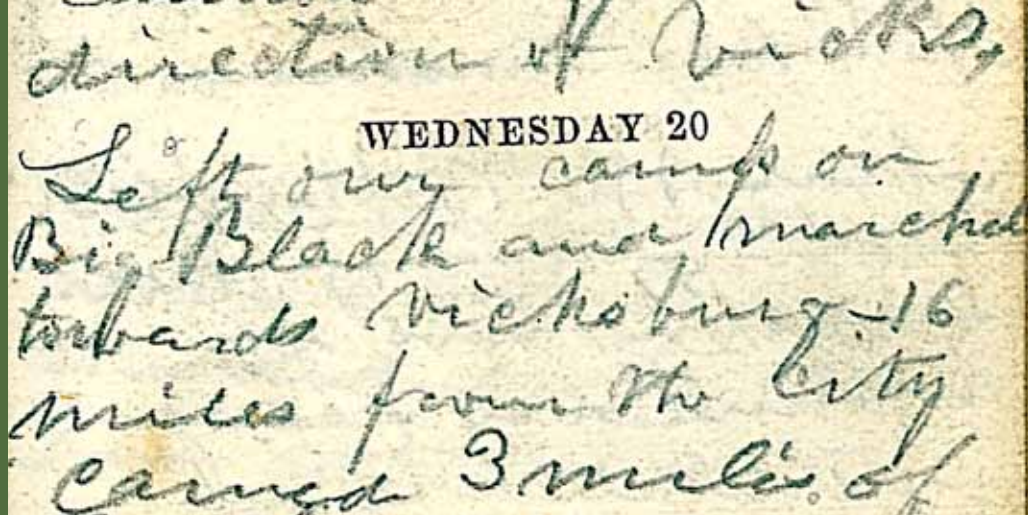 direction of Vicks,
WEDNESDAY 20
Left our camp on
Big Black and marched
towards Vicksburg-16
miles from the City
Camped 3 miles of